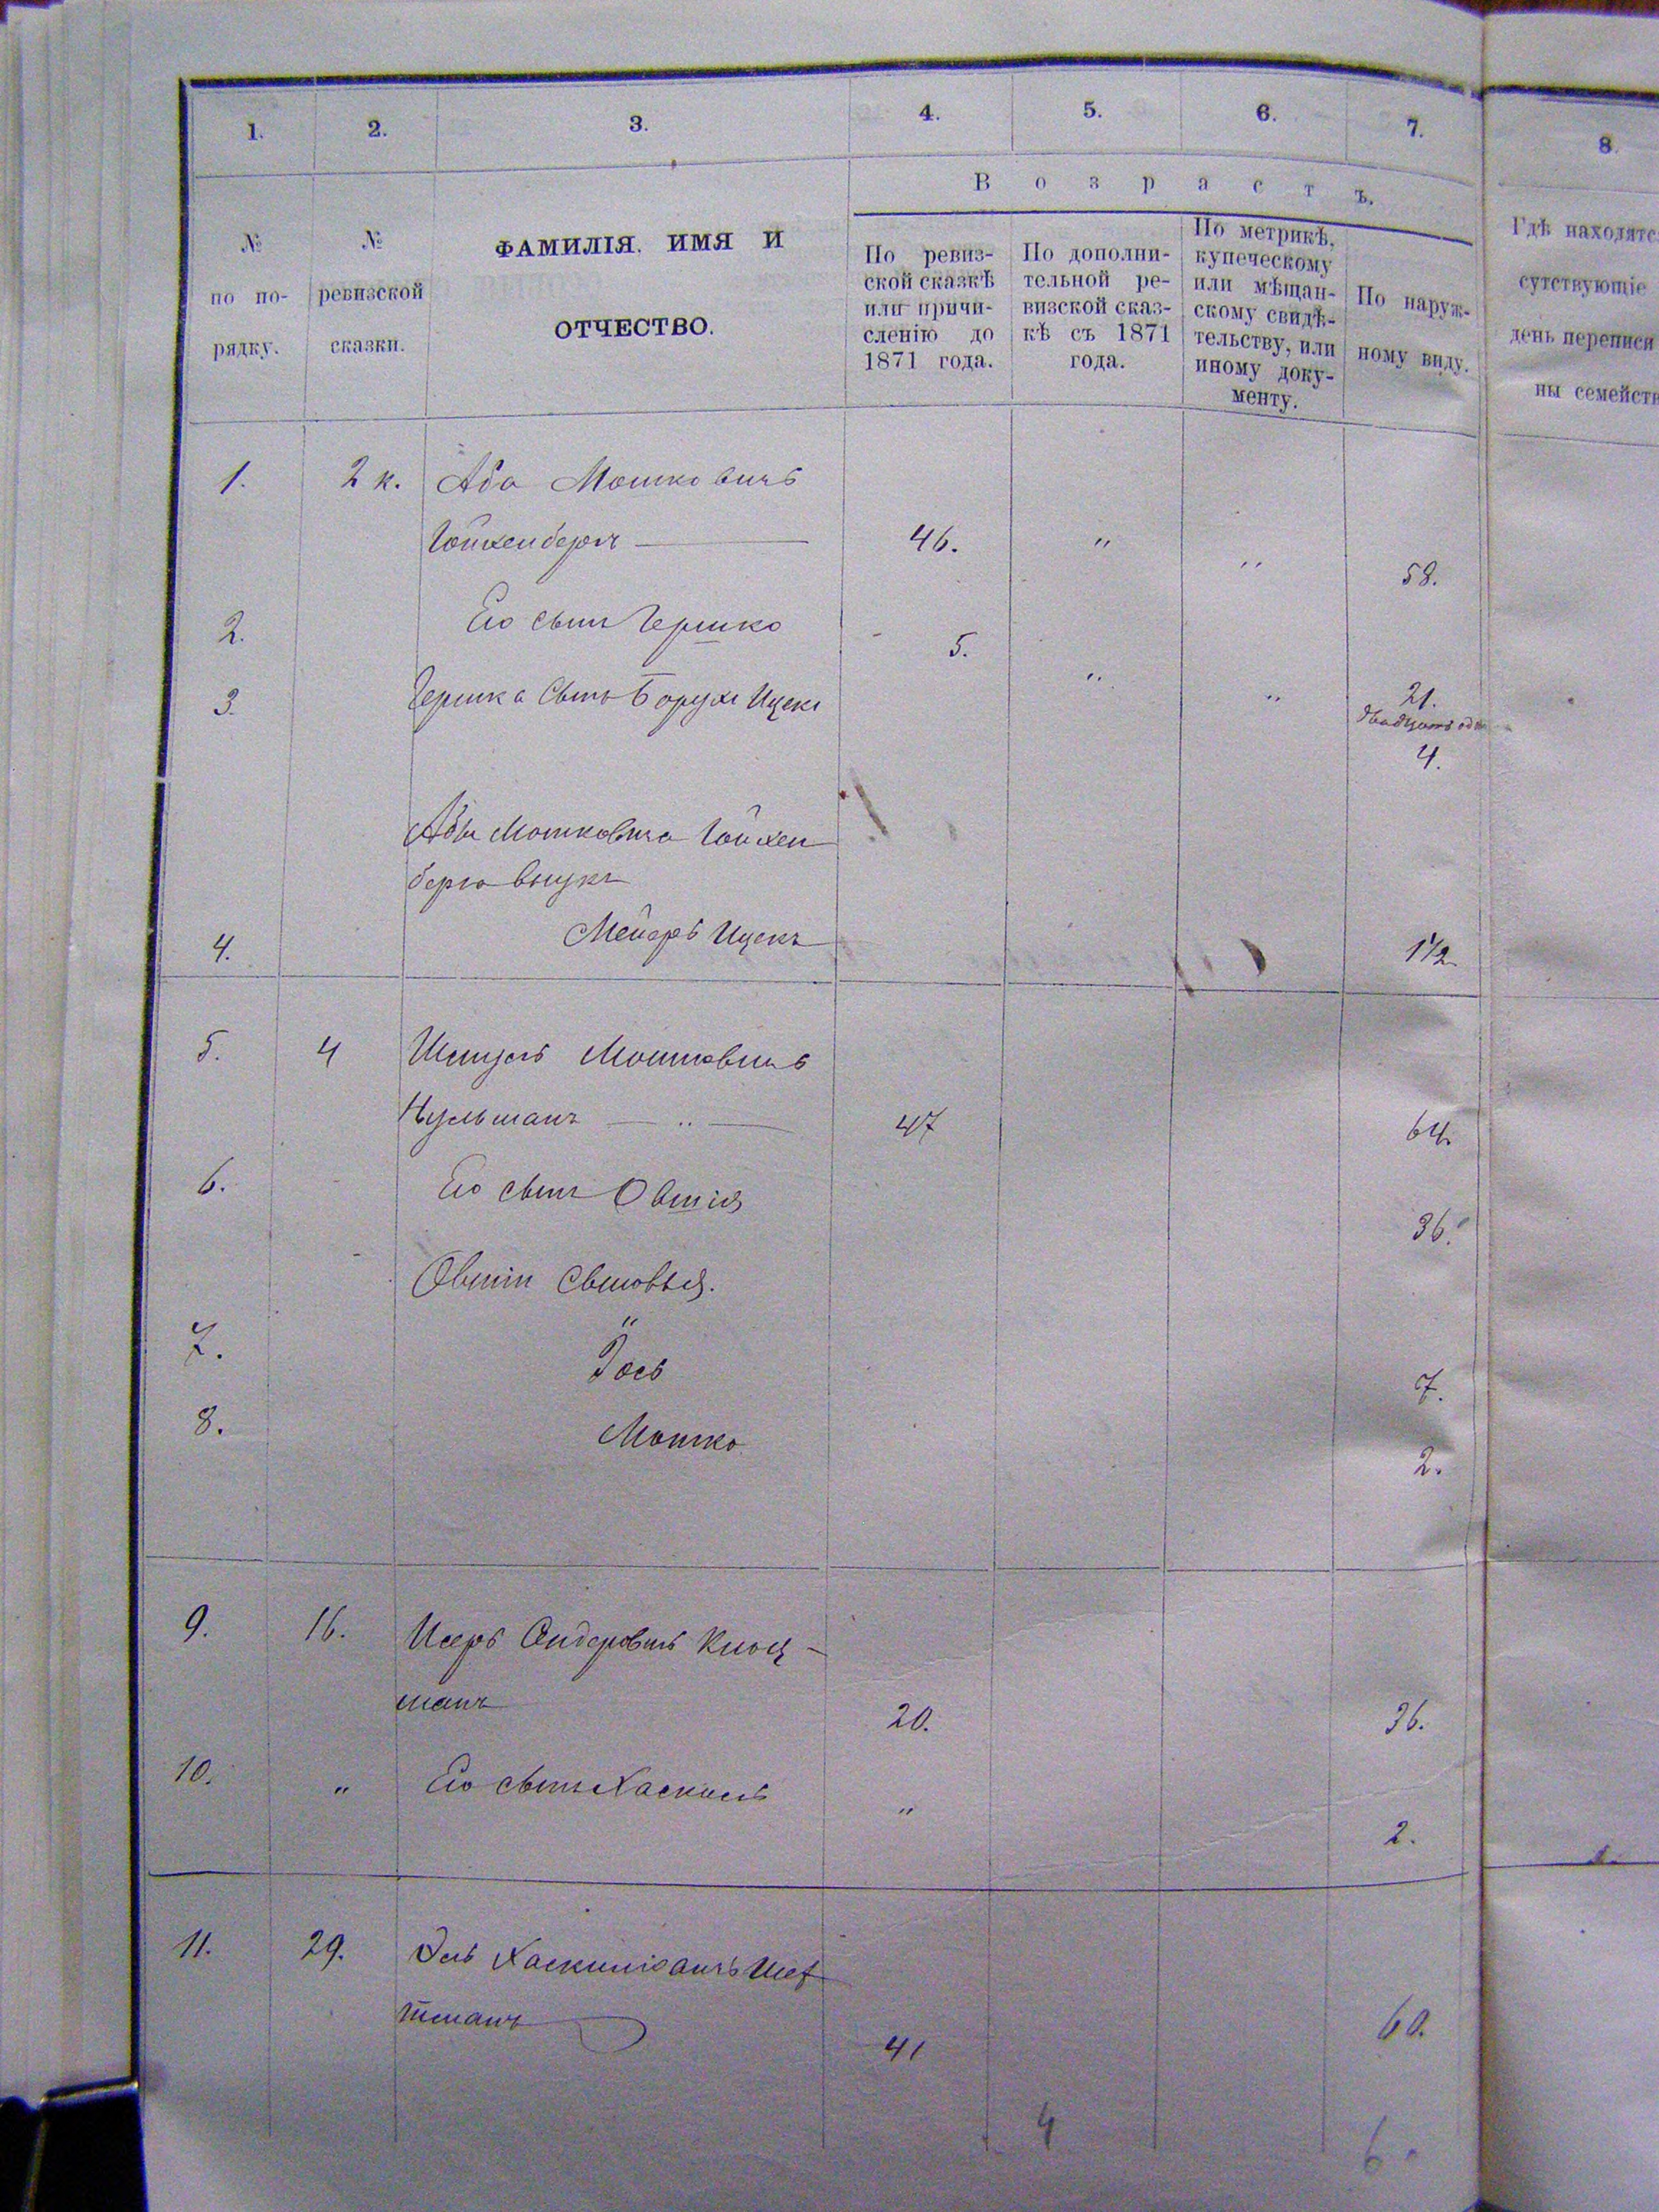 1. 2. 3. 4. 5. 6. 7. 8.
В о з р а с т ъ.
№ по по-рядку.
№ ревизской сказки.
ФАМИЛІЯ, ИМЯ И
ОТЧЕСТВО.
По ревиз-
ской сказкѣ
или причи-
сленію до
1871 года.
По дополни-
тельной ре-
визской сказ-
кѣ съ 1871
года.
По метрикѣ,
купеческому
или мѣщан-
скому свидѣ-
тельству, или
иному доку-
менту.
По наруж-
ному виду.
Гдѣ находятс
сутствующіе
день переписи
ны семейств
1. 2 к. Аба Мошковичъ
Гойхенбергъ 46. " " 58.
2. Его сынъ Гершко 5. " " 21.
двадцать один
3. Гершка сынъ Борухъ Ицекъ 4.
Абы Мошковича Гойхен
берга внукъ
4. Мейеръ Ицекъ 1 1/2
5. 4 Мошковичъ
Нульманъ " 47 64.
6. Его сынъ Овшія 36.
Овшіи сыновья.
"
7. Іось 7.
8. Мошко 2.
9. 16. Исеръ Сендеровичъ Кноц-
манъ 20. 36.
10. " Его сынъ Хаскель " 2.
11. 29. Хаскиліовичъ
тманъ 41 60.
4 6.